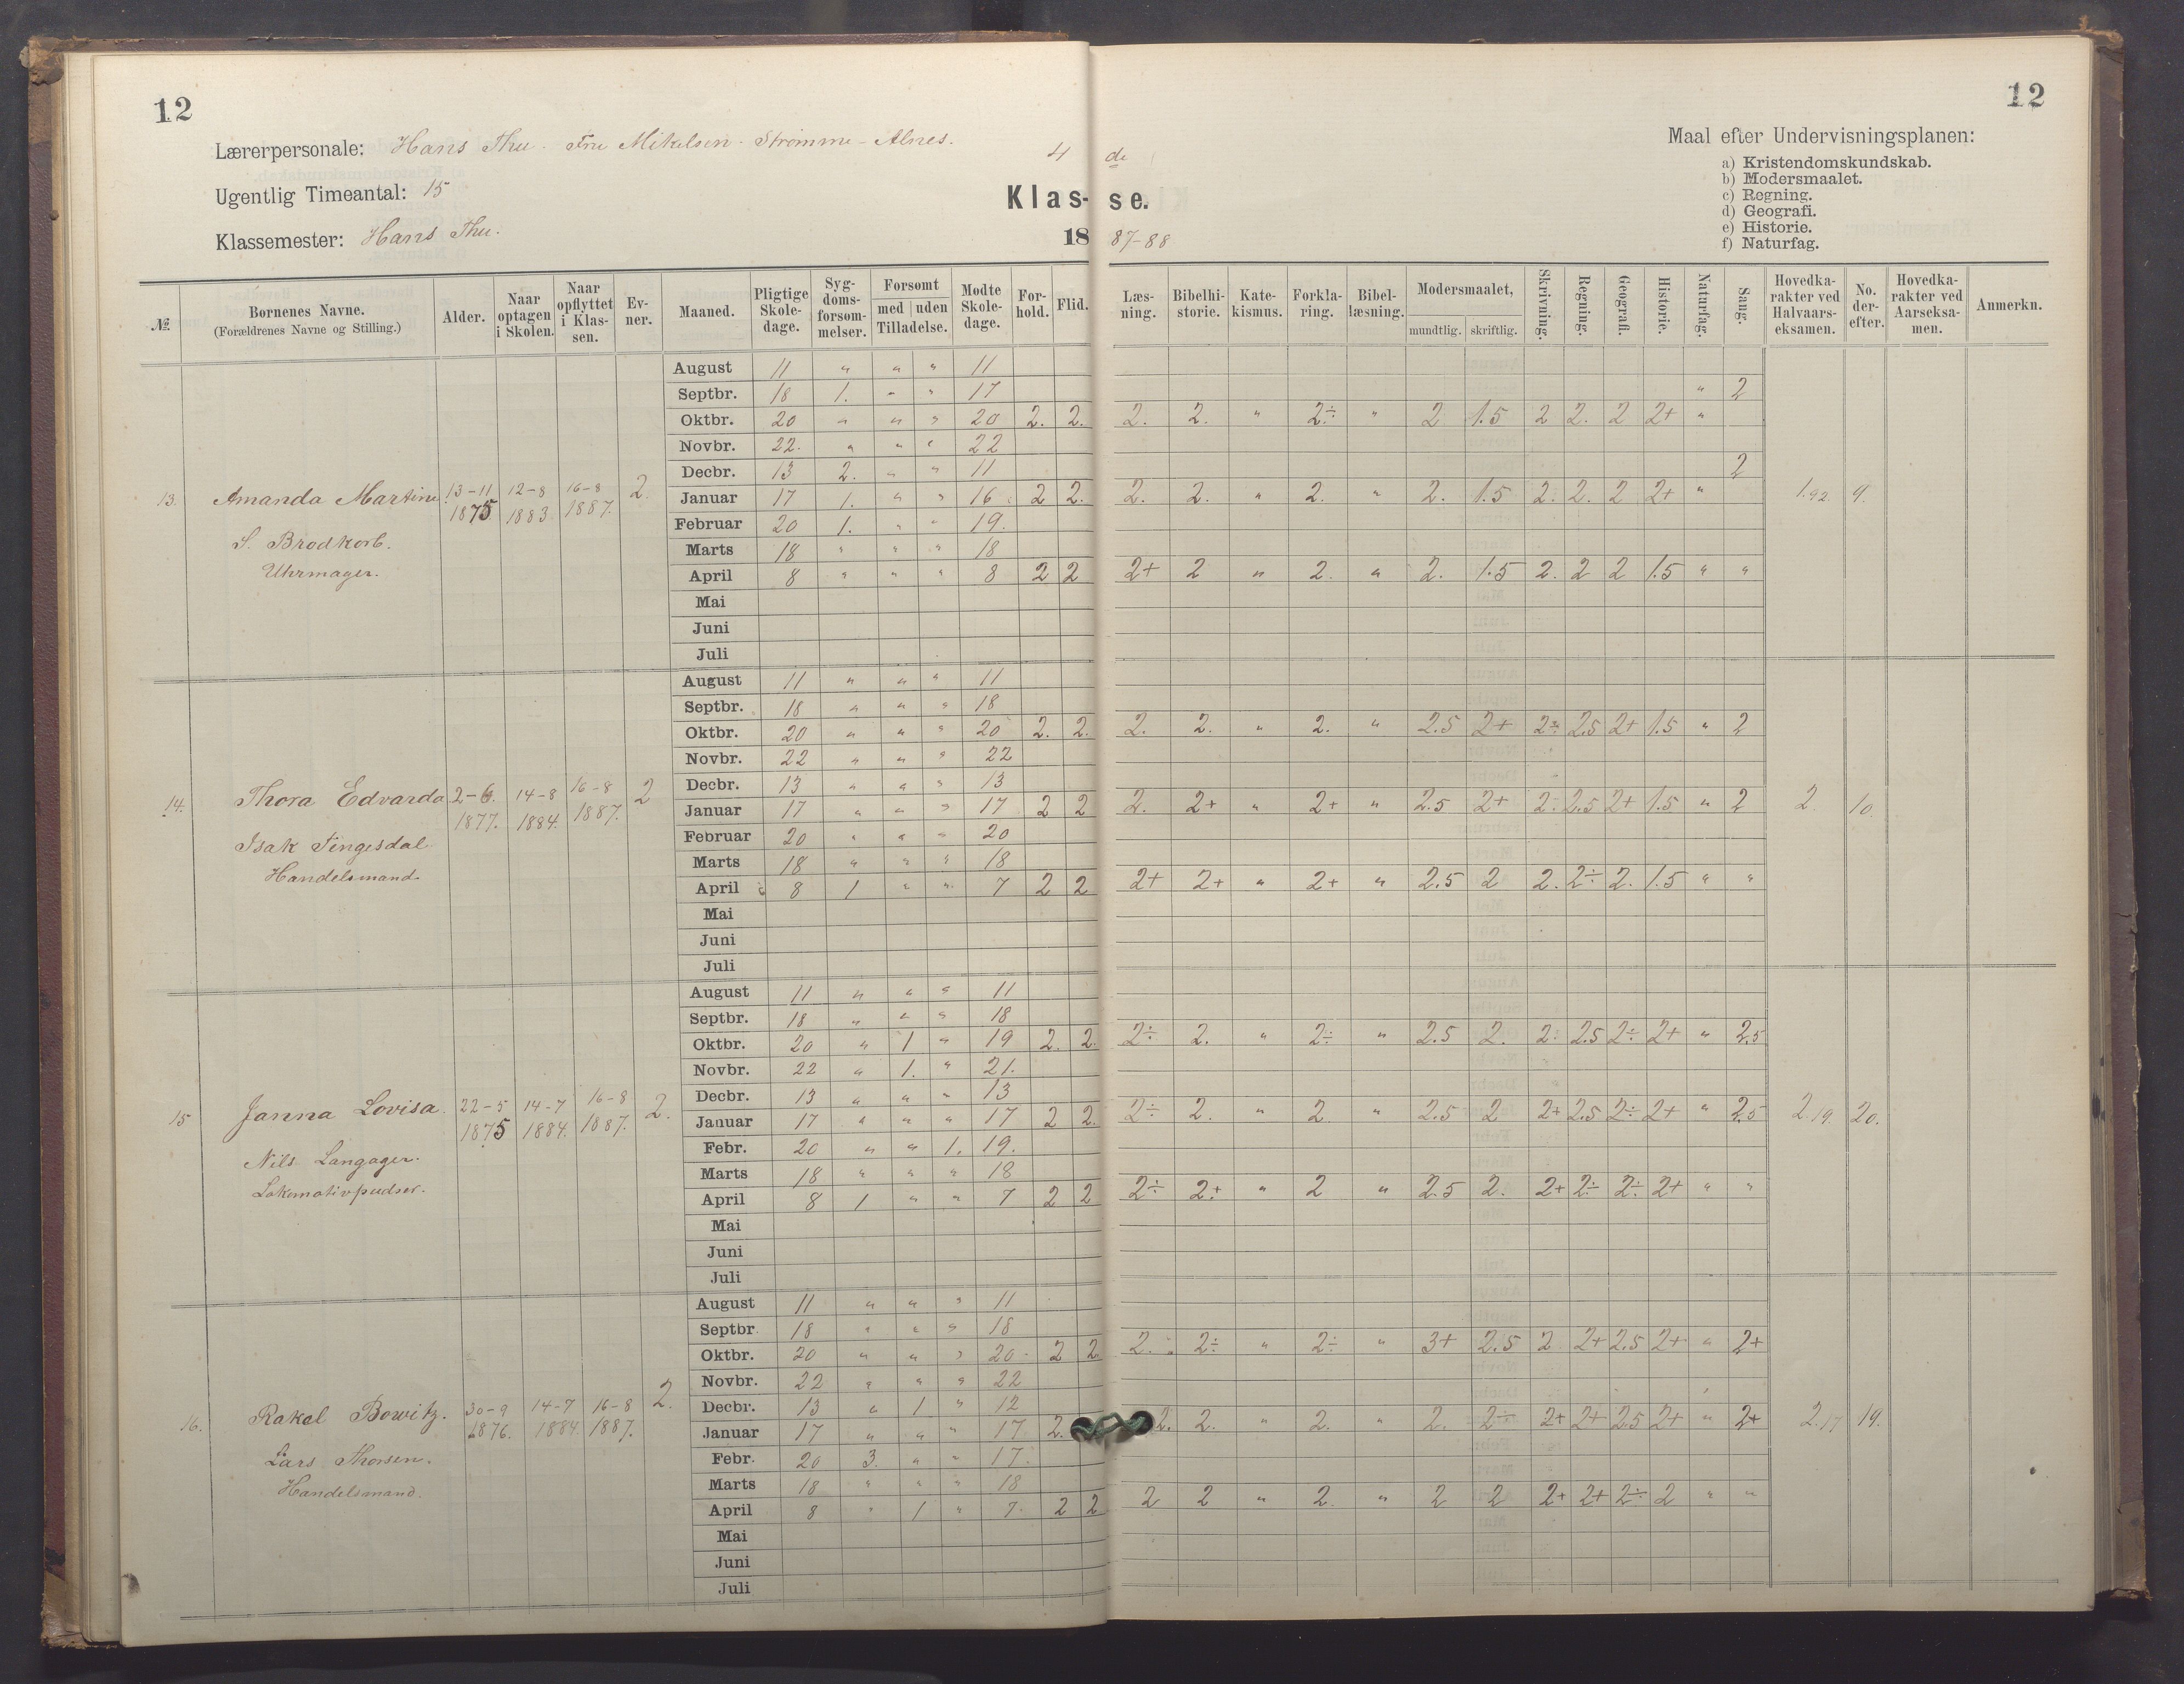 12
12
Lærerpersonale: Hans Thu. Fru Mikelsen. Strømme - Alnes.
Ugentlig Timeantal: 15
Klassemester: Hans Thu.
4 de
Klas- se.
18 87-88
Maal efter Undervisningsplanen:
a) Kristendomskundskab.
b) Modersmaalet.
c) Regning.
d) Geografi.
e) Historie.
f) Naturfag.
№ Børnenes Navne. (Forældrenes Navne og Stilling.) Alder. Naar optagen i Skolen. Naar opflyttet i Klassen. Evner. Maaned. Pligtige Skoledage. Sygdomsforsømmelser. Forsømt med uden Tilladelse. Mødte Skoledage. Forhold. Flid. Læsning. Bibelhistorie. Katekismus. Forklaring. Bibellæsning. Modersmaalet, mundtlig. skriftlig. Skrivning. Regning. Geografi. Historie. Naturfag. Sang. Hovedkarakter ved Halvaarseksamen. No. derefter. Hovedkarakter ved Aarseksamen. Anmerkn.
13. Amanda Martine 13-11 1875 12-8 1883. 16-8 1887. 2.
S. Brodkorb.
Uhrmager.
August 11 " " " 11
Septbr. 18 1. " " 17 " 2
Oktbr. 20 " " " 20 2. 2. 2. 2. " 2÷ " 2 1.5 2 2. 2 2+ "
Novbr. 22. " " " 22
Decbr. 13 2. " " 11 2
Januar 17 1. " " 16 2 2. 2. 2. " 2. " 2. 1.5 2. 2. 2 2+ " 1.92. 9.
Februar 20 1. " " 19.
Marts 18 " " " 18
April 8 " " " 8 2 2 2+ 2 " 2. " 2. 1.5 2. 2 2 1.5 " "
Mai
Juni
Juli
14. Thora Edvarda 2-6. 1877. 14-8 1884. 16-8 1887. 2
Isak Tingesdal
Handelsmand.
August 11 " " " 11
Septbr. 18 " " " 18
Oktbr. 20 " " " 20 2. 2. 2. 2. " 2. " 2.5 2+ 2÷ 2.5 2+ 1.5 " 2
Novbr. 22 " " " 22
Decbr. 13 " " " 13
Januar 17 " " " 17 2 2 2. 2+ " 2+ " 2.5 2+ 2÷ 2.5 2+ 1.5 " 2 2. 10.
Februar 20 " " " 20
Marts 18 " " " 18
April 8 1 " " 7 2 2 2+ 2+ " 2+ " 2.5 2 2. 2÷ 2. 1.5 " "
Mai
Juni
Juli
15 Janna Lovisa. 22-5 1875 14-7 1884. 16-8 1887. 2.
Nils Langager.
Lokomotivpudser.
August 11 " " " 11
Septbr. 18 " " " 18
Oktbr. 20 " 1 " 19 2. 2. 2÷ 2. " 2÷ " 2.5 2. 2÷ 2.5 2÷ 2+ " 2.5
Novbr. 22 " 1. " 21.
Decbr. 13 " " " 13
Januar 17 " " " 17 2 2. 2÷ 2. " 2 " 2.5 2 2+ 2.5 2÷ 2+ " 2.5 2.19. 20.
Febr. 20 " " 1. 19.
Marts 18 " " " 18
April 8 1 " " 7 2 2 2÷ 2+ " 2 " 2.5 2. 2+ 2÷ 2÷ 2+ " "
Mai
Juni
Juli
16. Rakel Bowitz. 30-9 1876. 14-7 1884. 16-8 1887. 2.
Lars Thorsen.
Handelsmand.
August 11 " " " 11
Septbr 18 " " " 18
Oktbr. 20 " " " 20 2 2. 2. 2÷ " 2÷ " 3+ 2.5 2 2+ 2.5 2+ " 2+
Novbr. 22 " " " 22
Decbr. 13 " 1 " 12
Januar 17 " " " 17 2. 2. 2. " 2. " 2. 2÷ 2+ 2+ 2.5 2+ " 2+ 2.17 19.
Febr. 20 3. " " 17.
Marts 18 " " " 18
April 8 " 1 " 7. 2 2 2 2 " 2. " 2 2 2+ 2+ 2÷ 2 " "
Mai
Juni
Juli